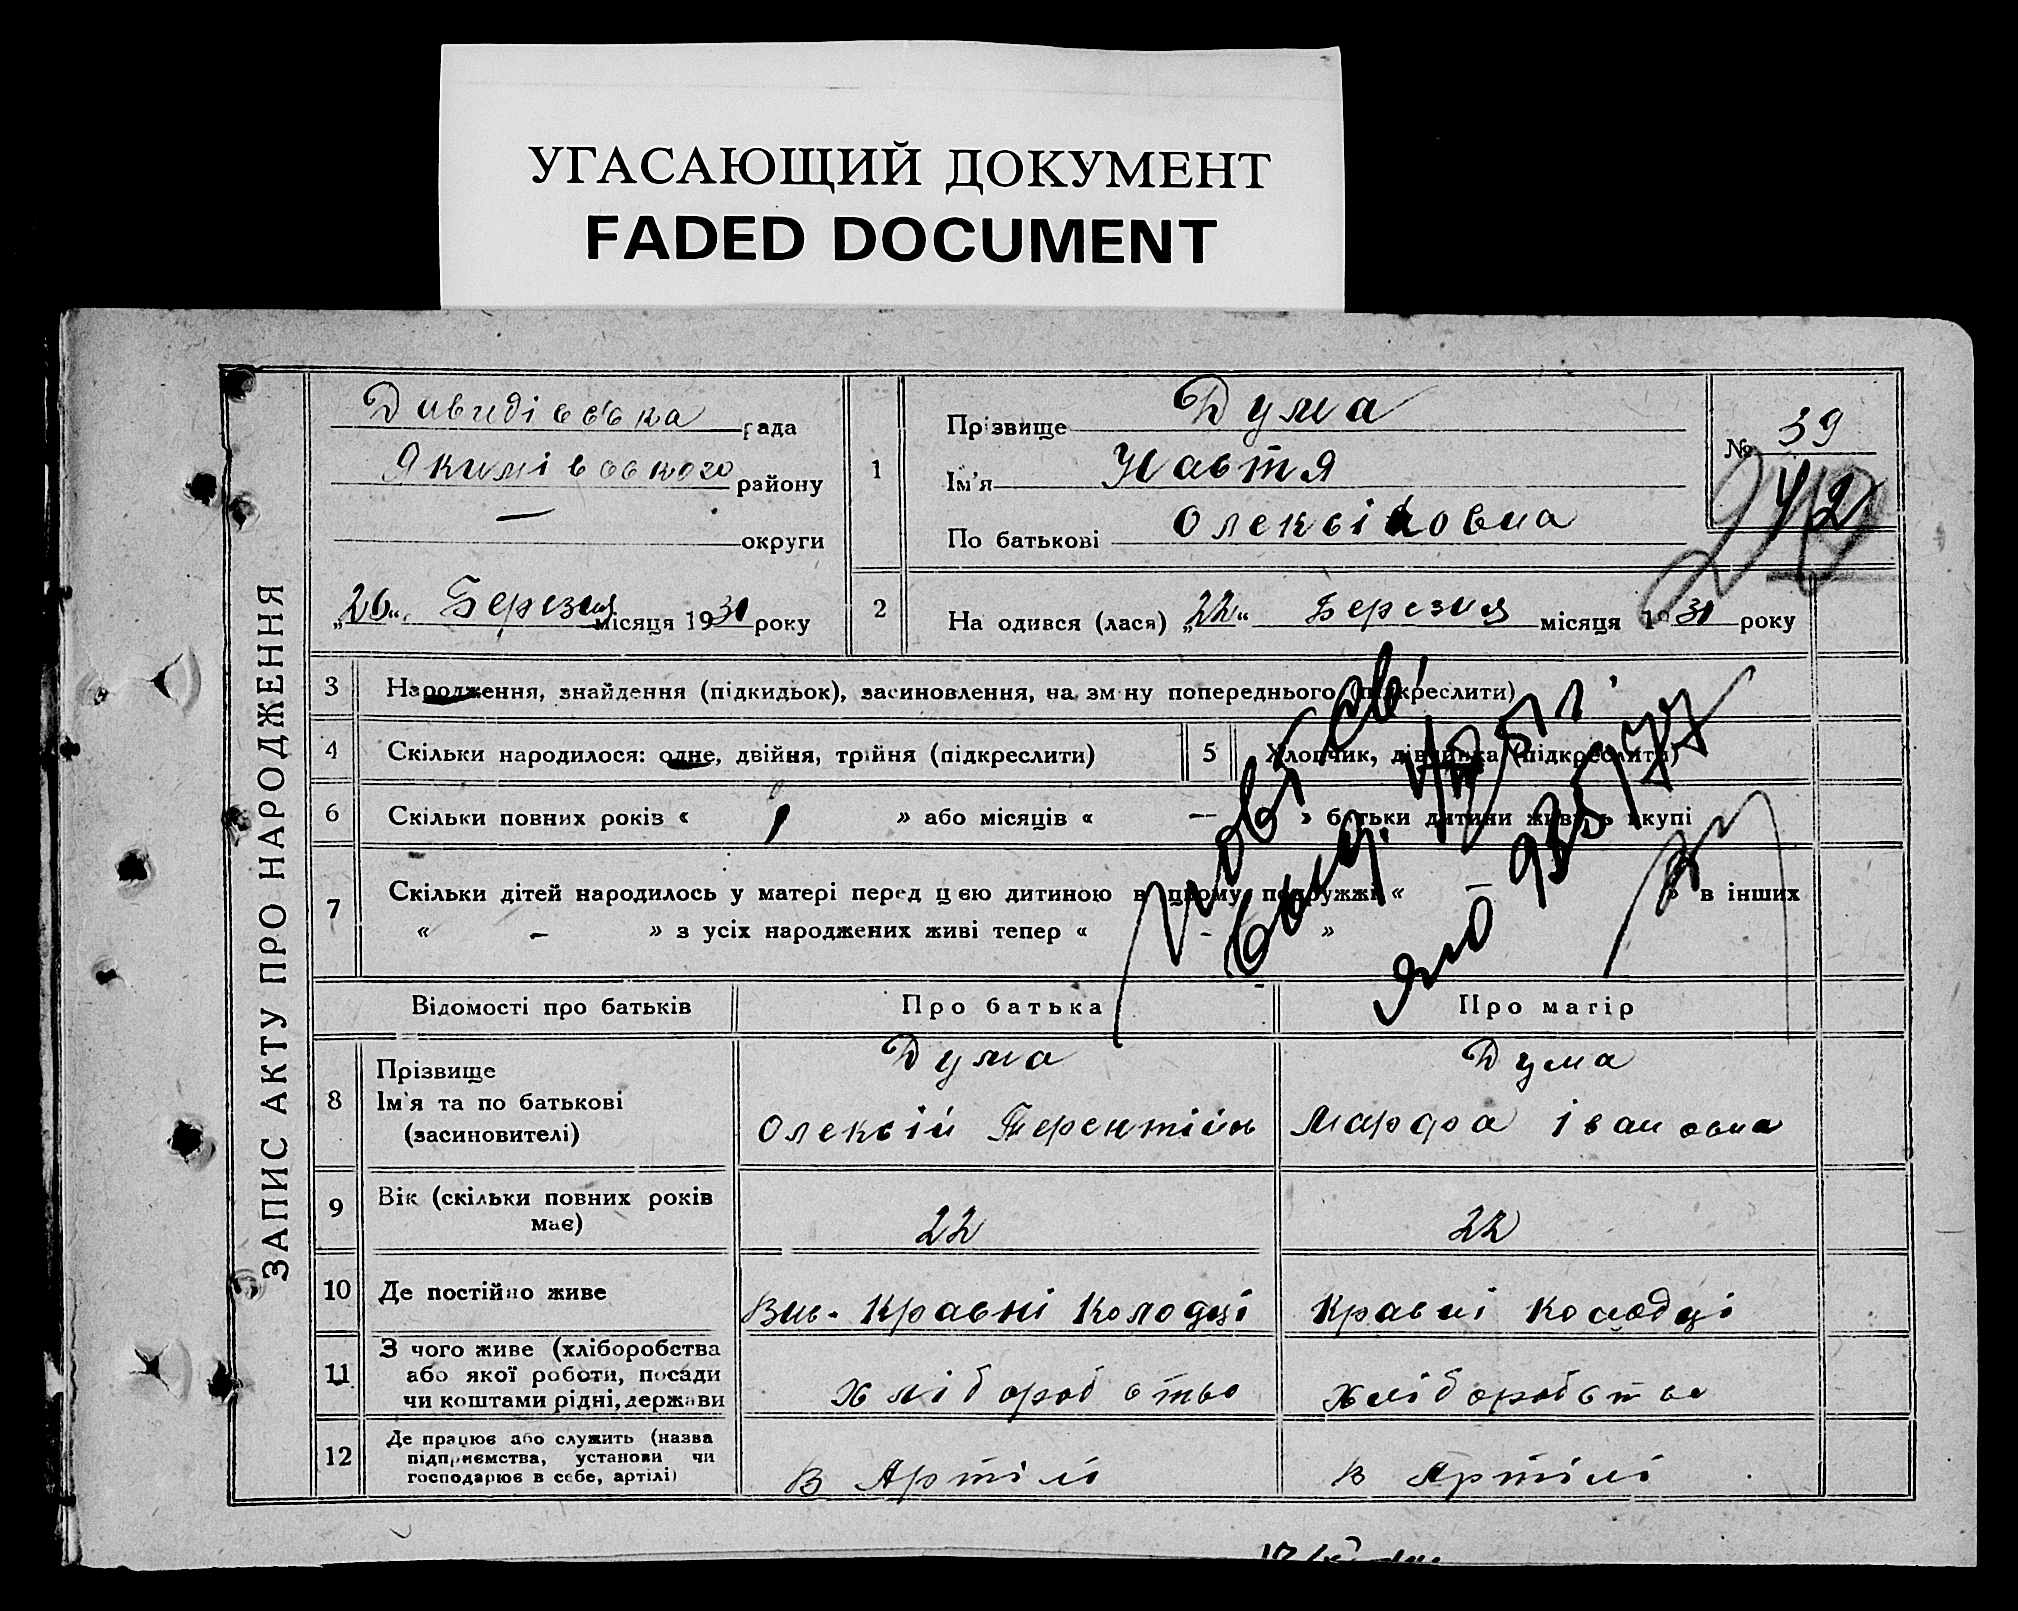 УГАСАЮЩИЙ ДОКУМЕНТ
FADED DOCUMENT
ЗАПИС АКТУ ПРО НАРОДЖЕННЯ
Давидівська рада
Якимівського району
— округи
„26“ Березня місяця 1931 року
1
Прізвище Дума
Ім'я Настя
По батькові Олексіовна
№ 39
42
2
На одився (лася) „22“ Березня місяця 1931 року
3 Народження, знайдення (підкидьок), засиновлення, на зміну попереднього (підкреслити)
4 Скільки народилося: одне, двійня, трійня (підкреслити)
5 Хлопчик, дівчинка (підкреслити)
6 Скільки повних років « 1 » або місяців « — » батьки дитини живуть вкупі
7 Скільки дітей народилось у матері перед цією дитиною в цьому подружжі « — » в інших
« - » з усіх народжених живі тепер « - »
Відомості про батьків Про батька Про матір
8 Прізвище
Ім'я та по батькові
(засиновителі)
Дума
Олексій Терентійов
Дума
Марфа Івановна
9 Вік (скільки повних років
має)
22 22
10 Де постійно живе
Кравні Колодці Кравні Колодці
11 З чого живе (хліборобства
або якої роботи, посади
чи коштами рідні, держави
хліборобство хліборобство
12 Де працює або служить (назва
підприємства, установи чи
господарює в себе, артілі)
в Артілі в Артілі